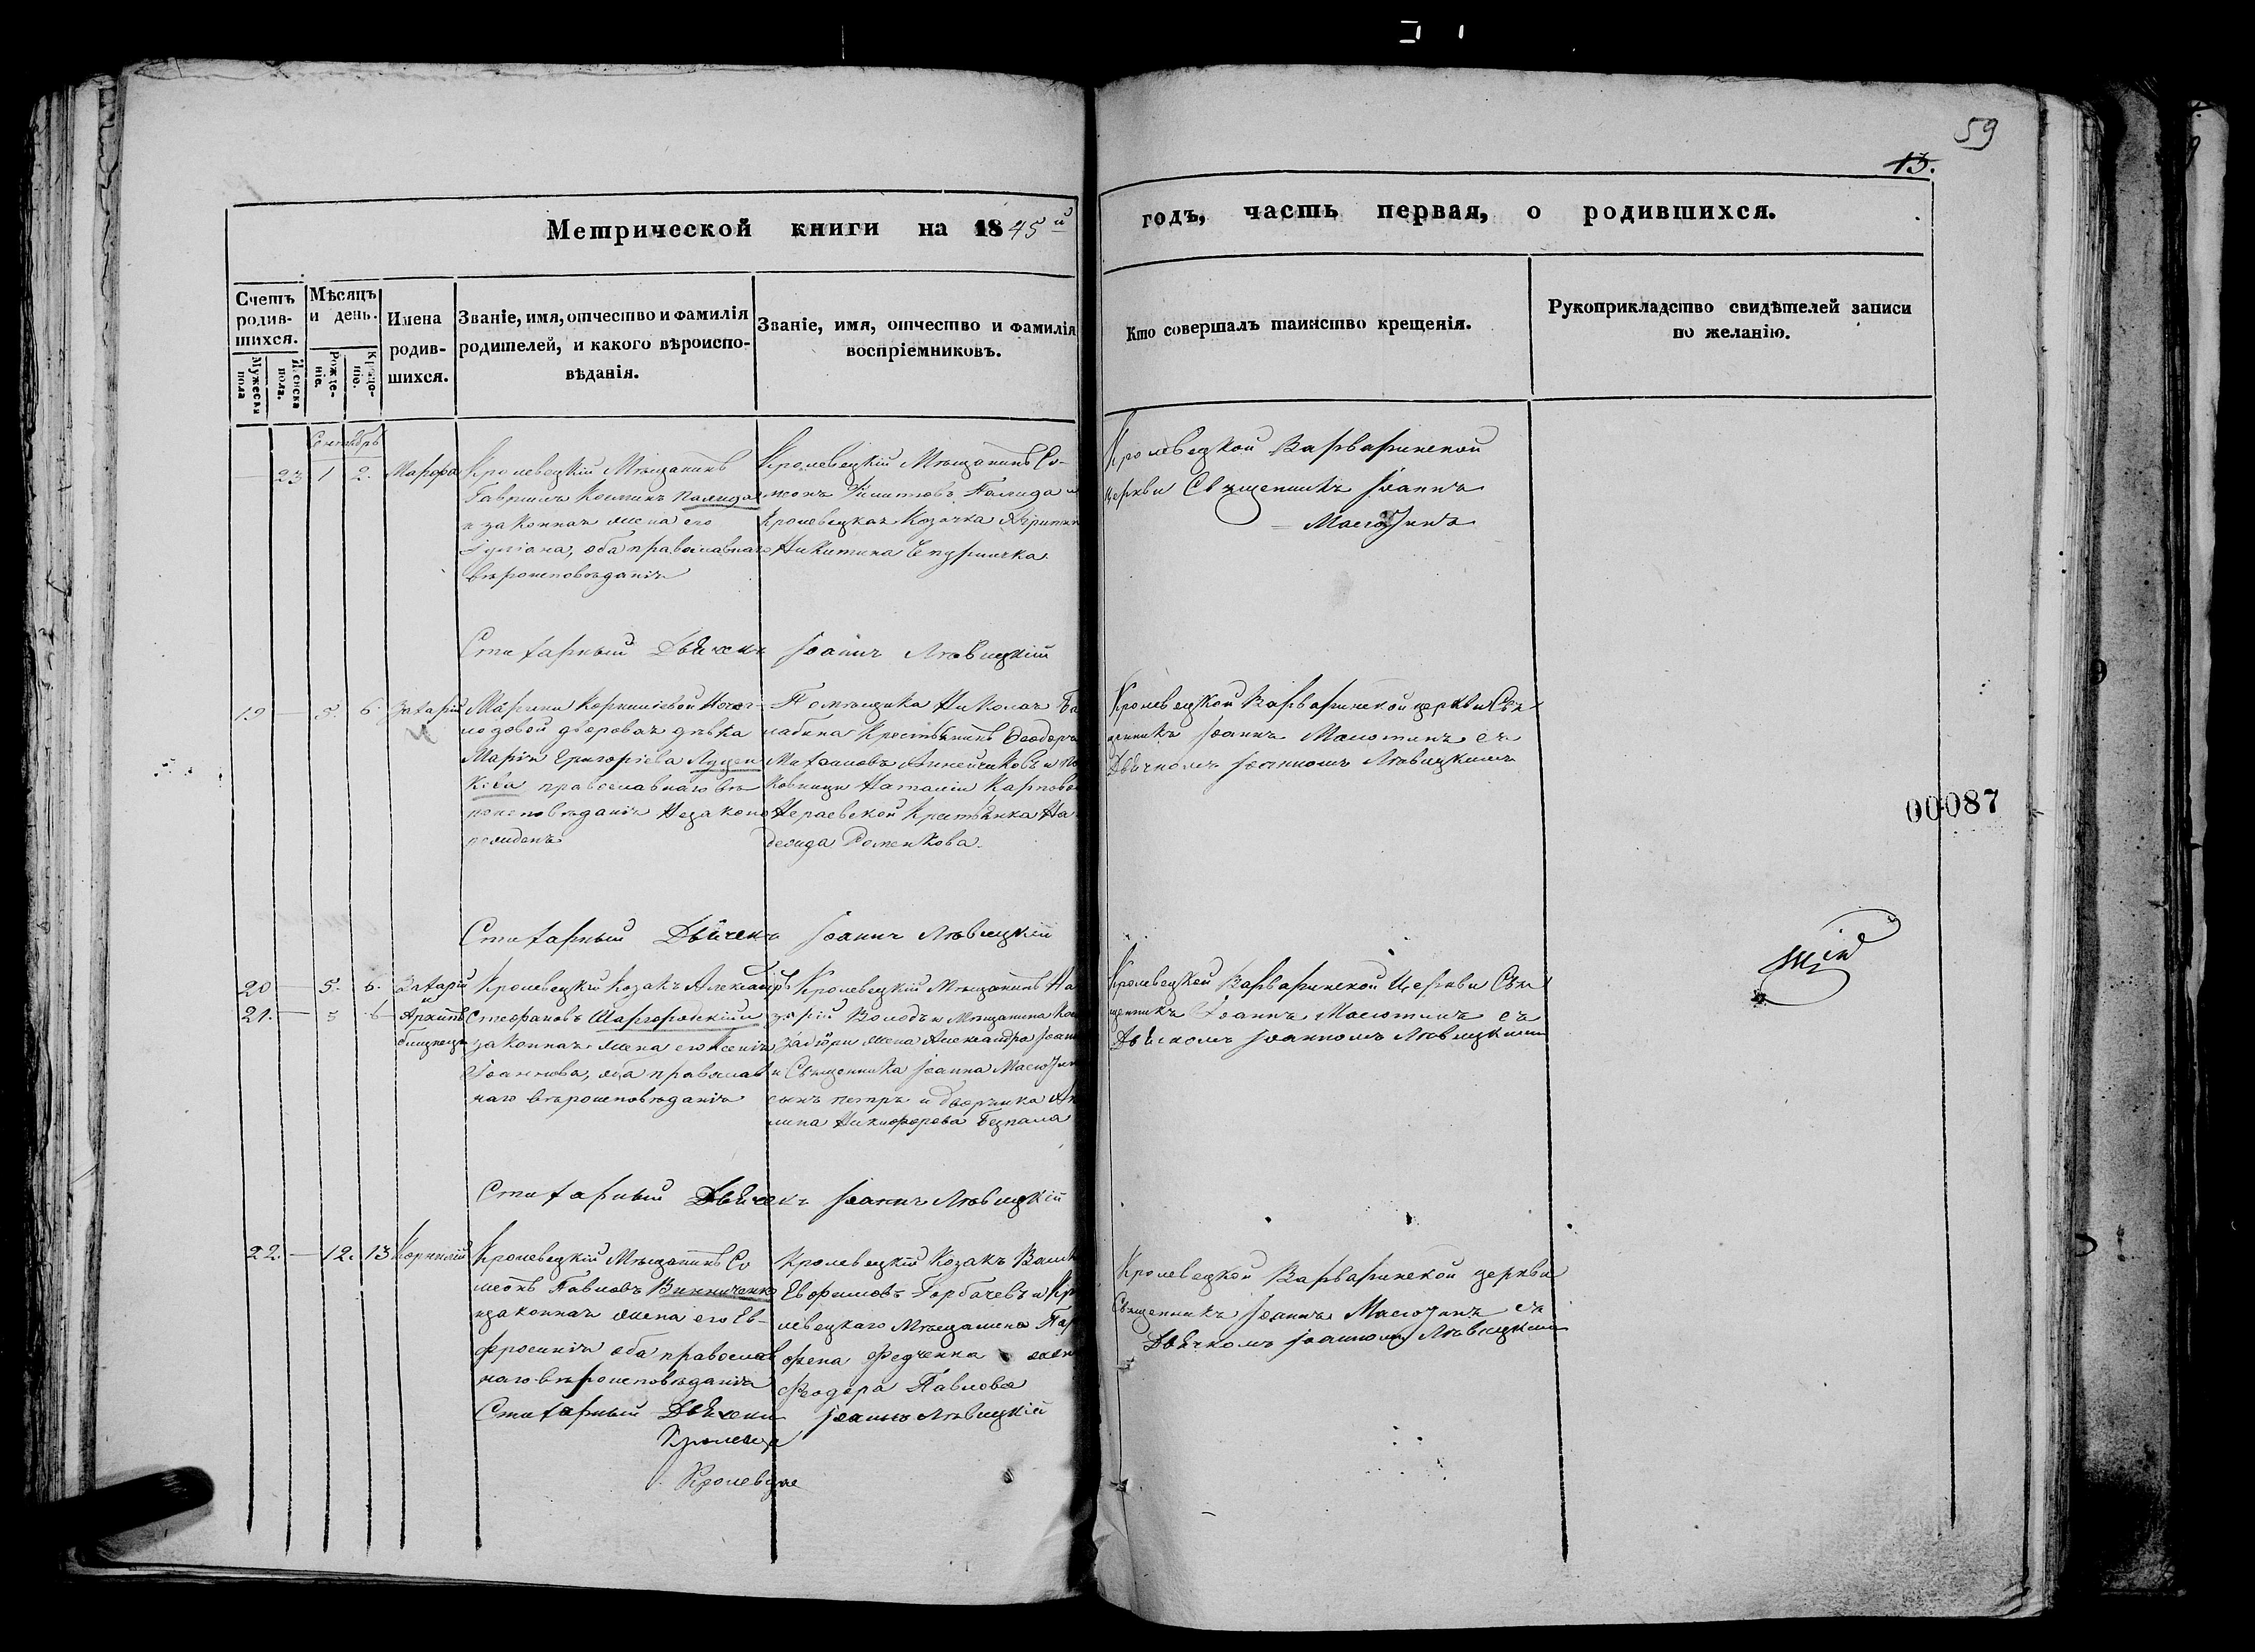 59
13.
Метрической книги на 1845й
годъ, часть первая, о родившихся.
Счетъ родив-шихся.
Мужеска пола
Женска пола.
Мѣсяцъ и день.
Рожде-ніе.
Креще-ніе.
Имена родив-шихся.
Званіе, имя, отчество и фамилія родителей, и какого вѣроиспо-вѣданія.
Званіе, имя, отчество и фамилія воспріемниковъ.
Кто совершалъ таинство крещенія.
Рукоприкладство свидѣтелей записи по желанію.
Сентябрь
23 1 2. Марфа
Кролевецкій Мѣщанинъ
Гавріилъ Косминъ Палида
и законная жена его
Іуліана, оба православнаго
вѣроисповѣданія
Кролевецкій Мѣщанинъ Си-
меонъ Палида и
Кролевецкая Козачка
Никитина
Кролевецкой Варваринской
церкви Священникъ Іоаннъ
Масютинъ
Стихарный Дьячекъ Іоаннъ Лѣвицкій
19 5. 6. Захарій
дворовая дѣвка
Марія Григоріева Луцен
кова православнаго вѣ
роисповѣданія Незаконо
рожденъ
Помѣщика Николая Ба
лабина Крестьянинъ Ѳеодоръ
Наталіи Карповой
Крестьянка На
дежда Роменкова.
Кролевецкой Варваринской церкви Свя
щенникъ Іоаннъ Масютинъ съ
Дьячкомъ Іоанномъ Лѣвицкимъ
00087
Стихарный Дьячекъ Іоаннъ Лѣвицкій
20 5. 6. Захарій
21. 5 6 Архипъ
близнецы
Кролевецкій Козакъ Александръ
Стефановъ Шаргородскій и
законная жена его Ксенія
Іоаннова, оба православ
наго вѣроисповѣданія
Кролевецкій Мѣщанинъ На
зарій
жена Александра Іоан
и Священника Іоанна Масютин
сынъ Петръ и дворянка
Никифорова Безпала
Кролевецкой Варваринской Церкви Свя
щенникъ Іоаннъ Масютинъ съ
Дьячкомъ Іоанномъ Лѣвицкимъ
Стихарный Дьячекъ Іоаннъ Лѣвицкій
22. 12. 13 Корнилій
Кролевецкій Мѣщанинъ Си
меонъ Павловъ Винниченко
и законная жена его Ев-
фросинія оба православ
наго вѣроисповѣданія
Кролевецкій Козакъ Васил
Евфимовъ Горбачевъ и Кро
левецкаго Мѣщанина Пар
фена Федченка жена
Феодора Павлова
Кролевецкой Варваринской церкви
Священникъ Іоаннъ Масютинъ съ
Дьячкомъ Іоанномъ Лѣвицкимъ
Стихарный Дьячекъ Іоаннъ Лѣвицкій